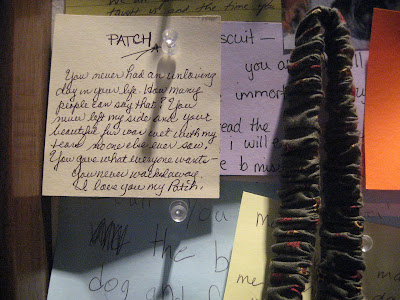 and the time you
PATCH
You never had an unloving
day in your life. How many
people can say that? You
never left my side and your
beautiful fur was wet with my
tears no one else ever saw.
You gave what everyone wants—
you never walked away.
I love you my Patch.
scuit —
you a
immor
ead the
i will e
e b mus
you m
the b
dog and
me